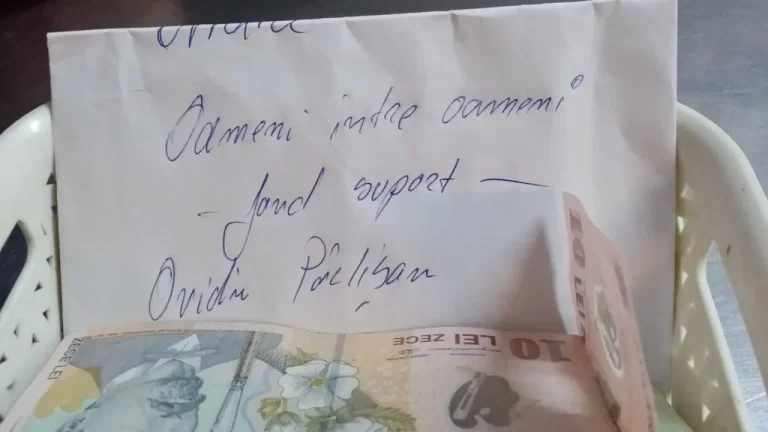 Ovidiu
Oameni între oameni
- fond suport -
Ovidiu
10 LEI ZECE
ZECE LEI
10 LEI